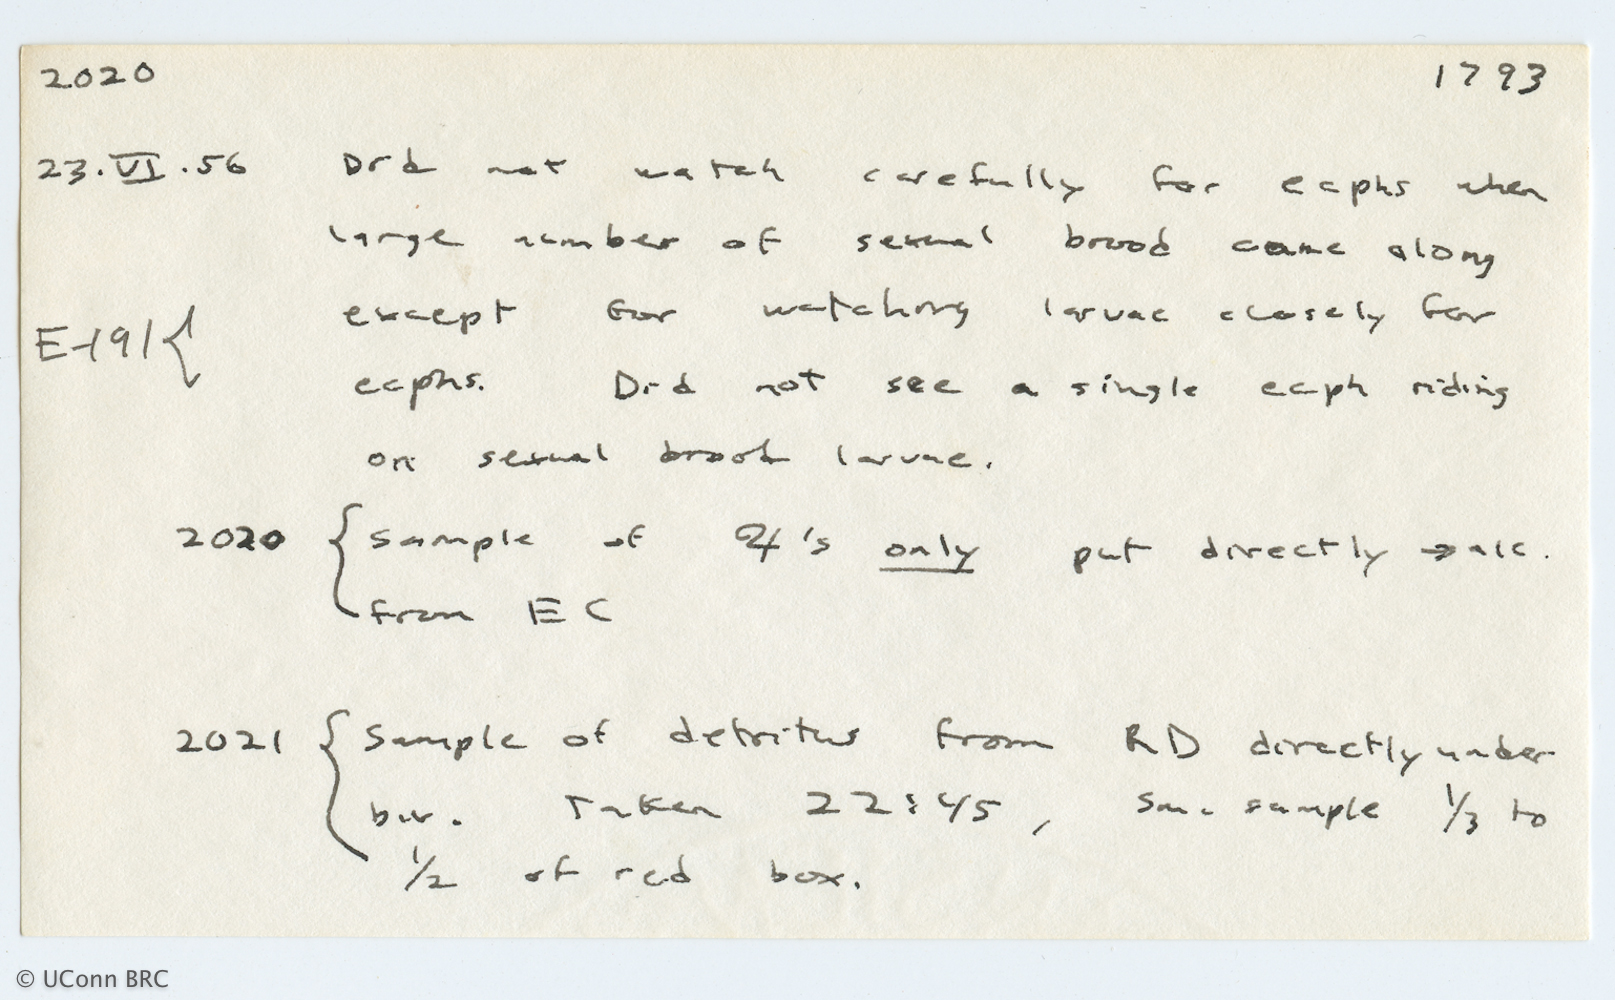 2020 1793
23.VI.56 Did not watch carefully for ecphs when
large number of sexual brood came along
E-191 { except for watching larvae closely for
ecphs. Did not see a single ecph riding
on sexual brood larvae.
2020 { Sample of ☿'s only put directly → alc.
from EC
2021 { Sample of detritus from RD directly under
biv. Taken 22:45, sm. sample 1/3 to
1/2 of red box.
© UConn BRC